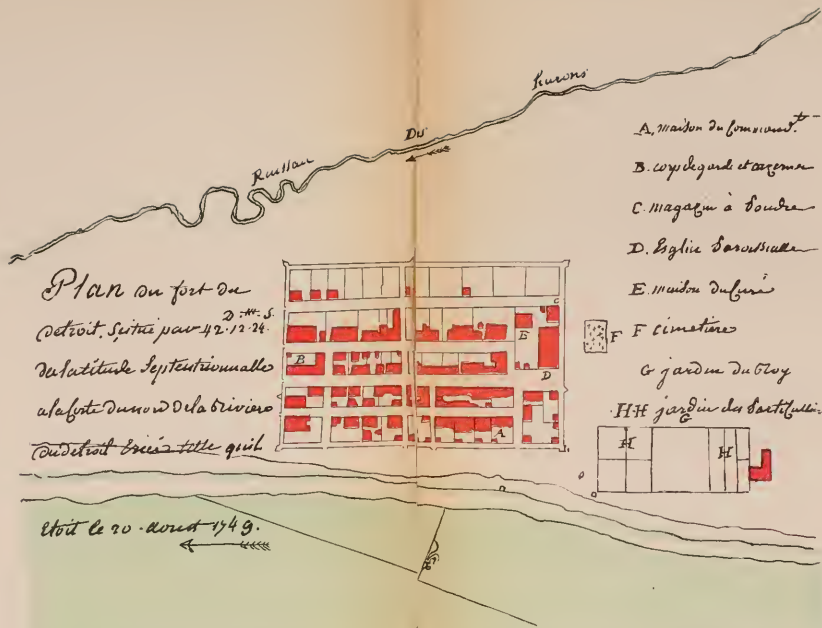 Ruissau Du hurons
Plan du fort du
D. M. S.
detroit. Scitué par 42.12.24.
de latitude Septentrionnalle
a la Coste du nord de la Riviere
du detroit Erièz telle quil
Etoit le 20. aoust 1749.
A. maison du Command.t
B. corps de garde et cazernes
C. magazin à Poudre
D. Esglise Paroissialle
E. maison du Curé
F cimetiere
G jardin du Roy
HH jardin des Particulliers
C
E
F
B
D
A
G
H
H